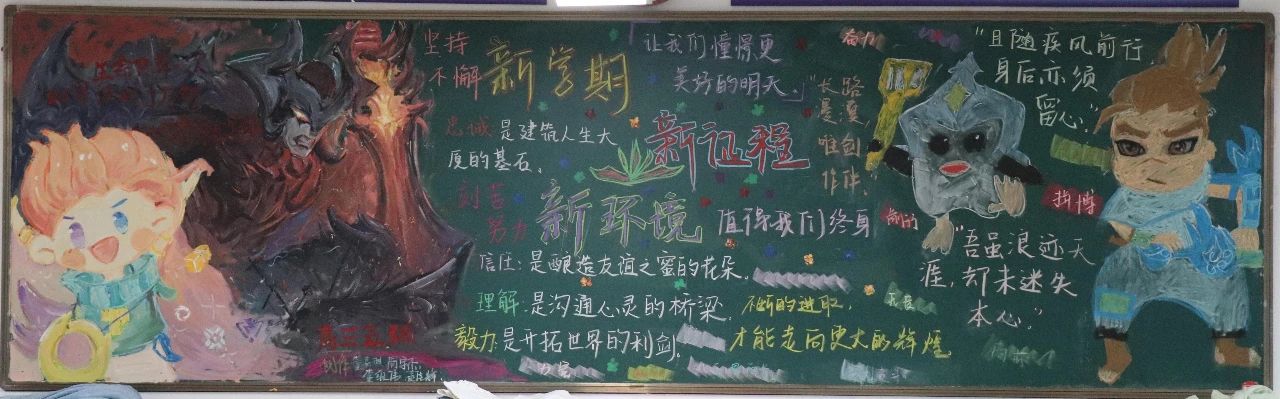 坚持
不懈
新学期
让我们憧憬更
美好的明天。
奋力
"且随疾风前行,
身后亦须
留心。"
"长路
漫漫,
唯剑
作伴。"
忠诚是建筑人生大
厦的基石。
新征程
刻苦
努力
新环境
值得我们终身
拼搏
信任:是酿造友谊之蜜的花朵。
"吾虽浪迹天
涯,却未迷失
本心。"
理解:是沟通心灵的桥梁。
不断的进取,
毅力:是开拓世界的利剑。
才能走向更大的辉煌。
制作